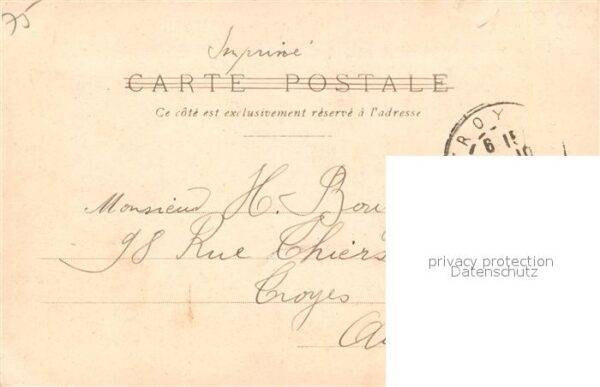 75
Imprimé
CARTE POSTALE
Ce côté est exclusivement réservé à l'adresse
TROY
16 15
Monsieur H. Bou
98 Rue Thiers
Troyes
Au
privacy protection
Datenschutz